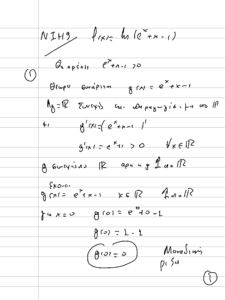 ΝΙΗ9 f(x) = ln(e^x + x - 1)
Θα πρέπει e^x + x - 1 > 0
① Θεωρώ συνάρτηση g(x) = e^x + x - 1
Ag = ℝ Συνεχής και παραγωγίσιμη στο ℝ
g'(x) = (e^x + x - 1)'
g'(x) = e^x + 1 > 0 ∀x ∈ ℝ
g συνεχής ℝ άρα g ↑ στο ℝ
Έχουμε:
g(x) = e^x + x - 1 x ∈ ℝ ↑ στο ℝ
για x = 0 g(0) = e^0 + 0 - 1
g(0) = 1 - 1
g(0) = 0 Μοναδική
ρίζα
①